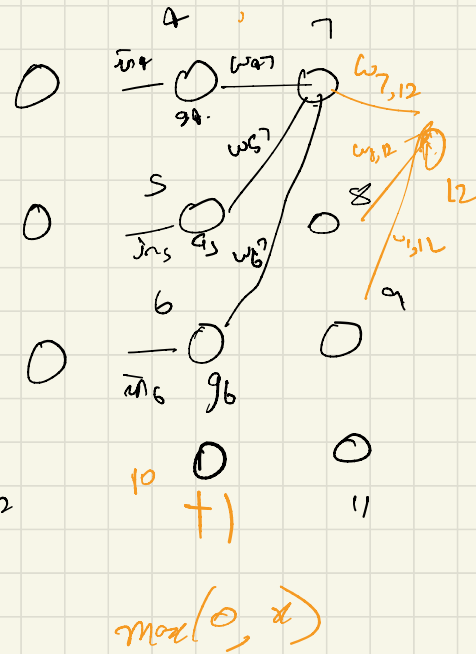 4
7
in4
w47
w7,12
g4.
w57
w8,12
5
8
12
in5
a5
w67
w9,12
6
9
in6
g6
10
2
+1
11
max(0, x)